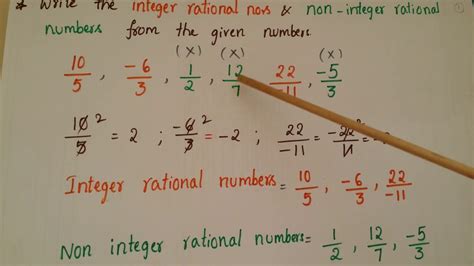 * Write the integer rational nos & non-integer rational
numbers from the given numbers
(x) (x) (x)
10/5 , -6/3 , 1/2 , 12/7 , 22/-11 , -5/3
10/5 2 = 2 ; -6/3 2 = -2 ; 22/-11 = -22 2/11 =
Integer rational numbers = 10/5 , -6/3 , 22/-11
Non integer rational numbers = 1/2 , 12/7 , -5/3